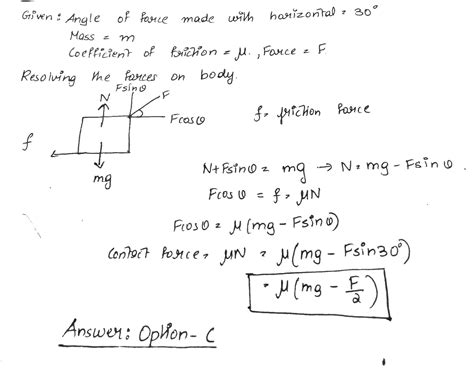 Given: Angle of force made with horizontal = 30°
Mass = m
Coefficient of friction = μ., Force = F
Resolving the forces on body.
Fsinθ
N
F
Fcosθ
f = friction Force
f
mg
N+Fsinθ = mg → N = mg - Fsinθ.
Fcosθ = f = μN
Fcosθ = μ(mg - Fsinθ)
Contact Force = μN = μ(mg - Fsin30°)
= μ(mg - F/2)
Answer: Option - C